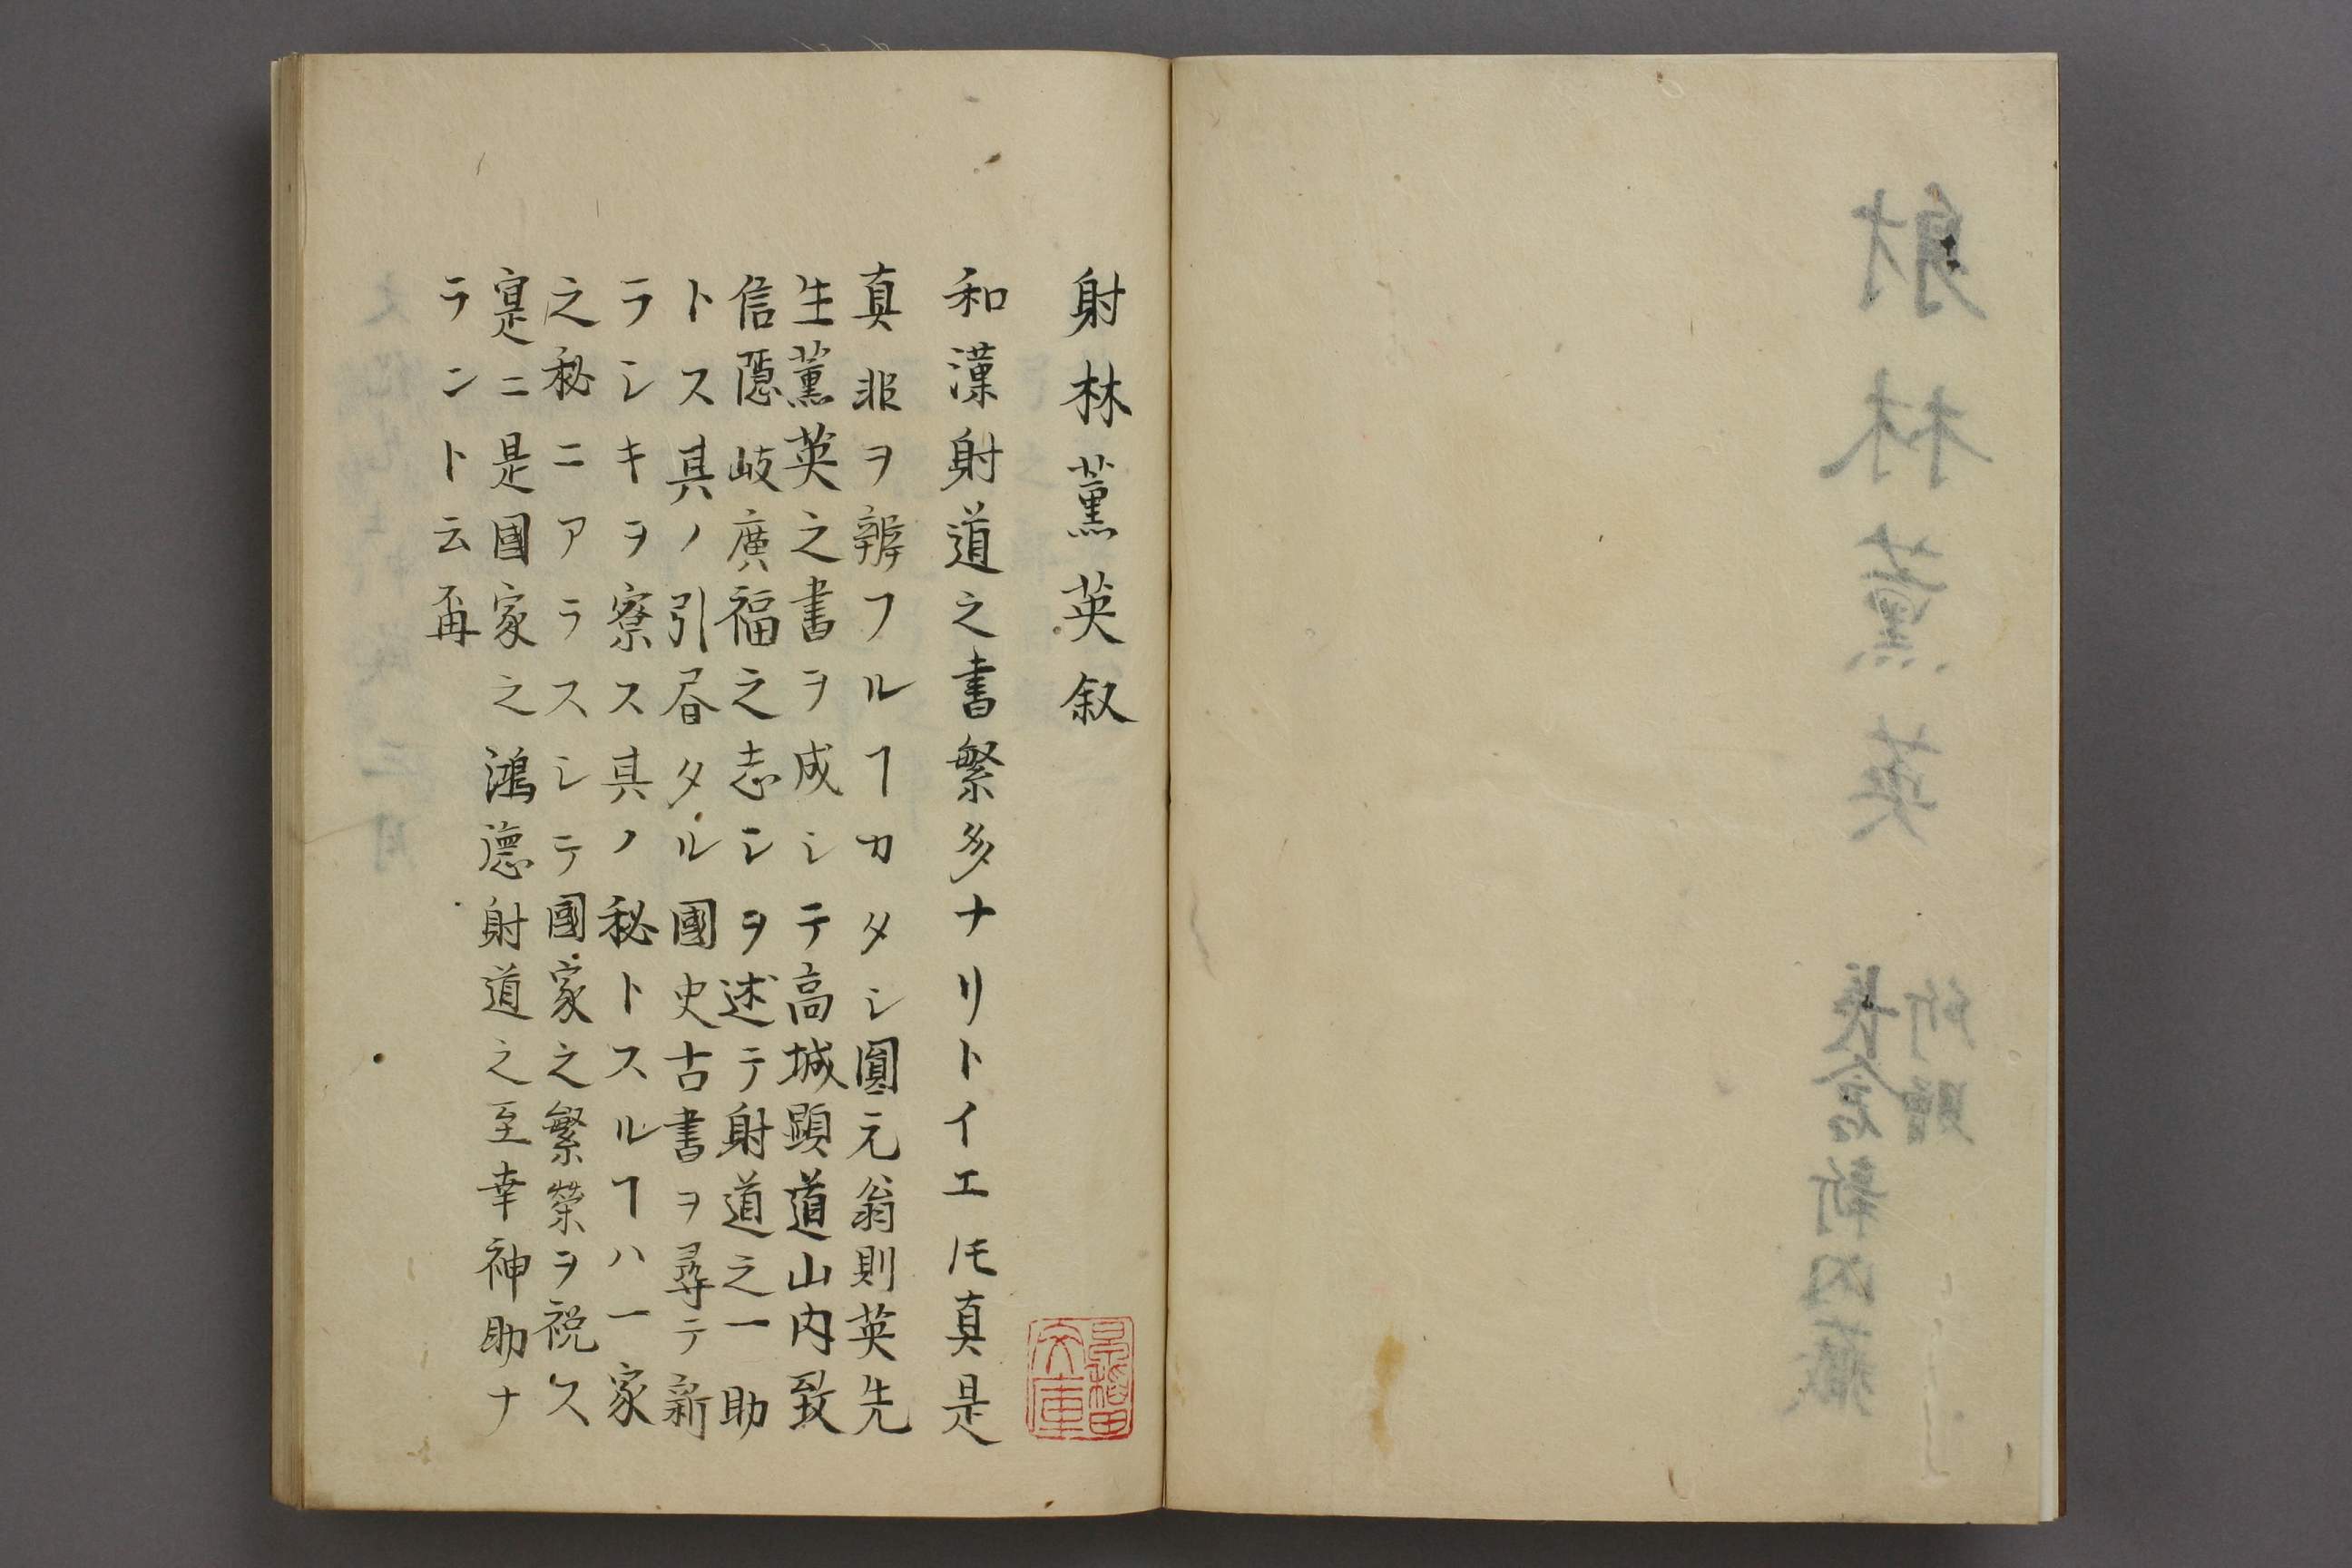 射林薫英叙
和漢射道之書繁多ナリトイエ𪜈真是
真非ヲ辨フルヿカタシ圓元翁則英先
生薫英之書ヲ成シテ高城顕道山内致
信隠岐廣福之志シヲ述テ射道之一助
トス其ノ引㫺タル國史古書ヲ尋テ新
ラシキヲ寮ス其ノ秘トスルヿハ一家
之秘ニアラスシテ國家之繁榮ヲ祝ス
寔ニ是國家之鴻徳射道之至幸神助ナ
ラント云爾
早稲田
文庫
射林薫英
所贈
長倉新